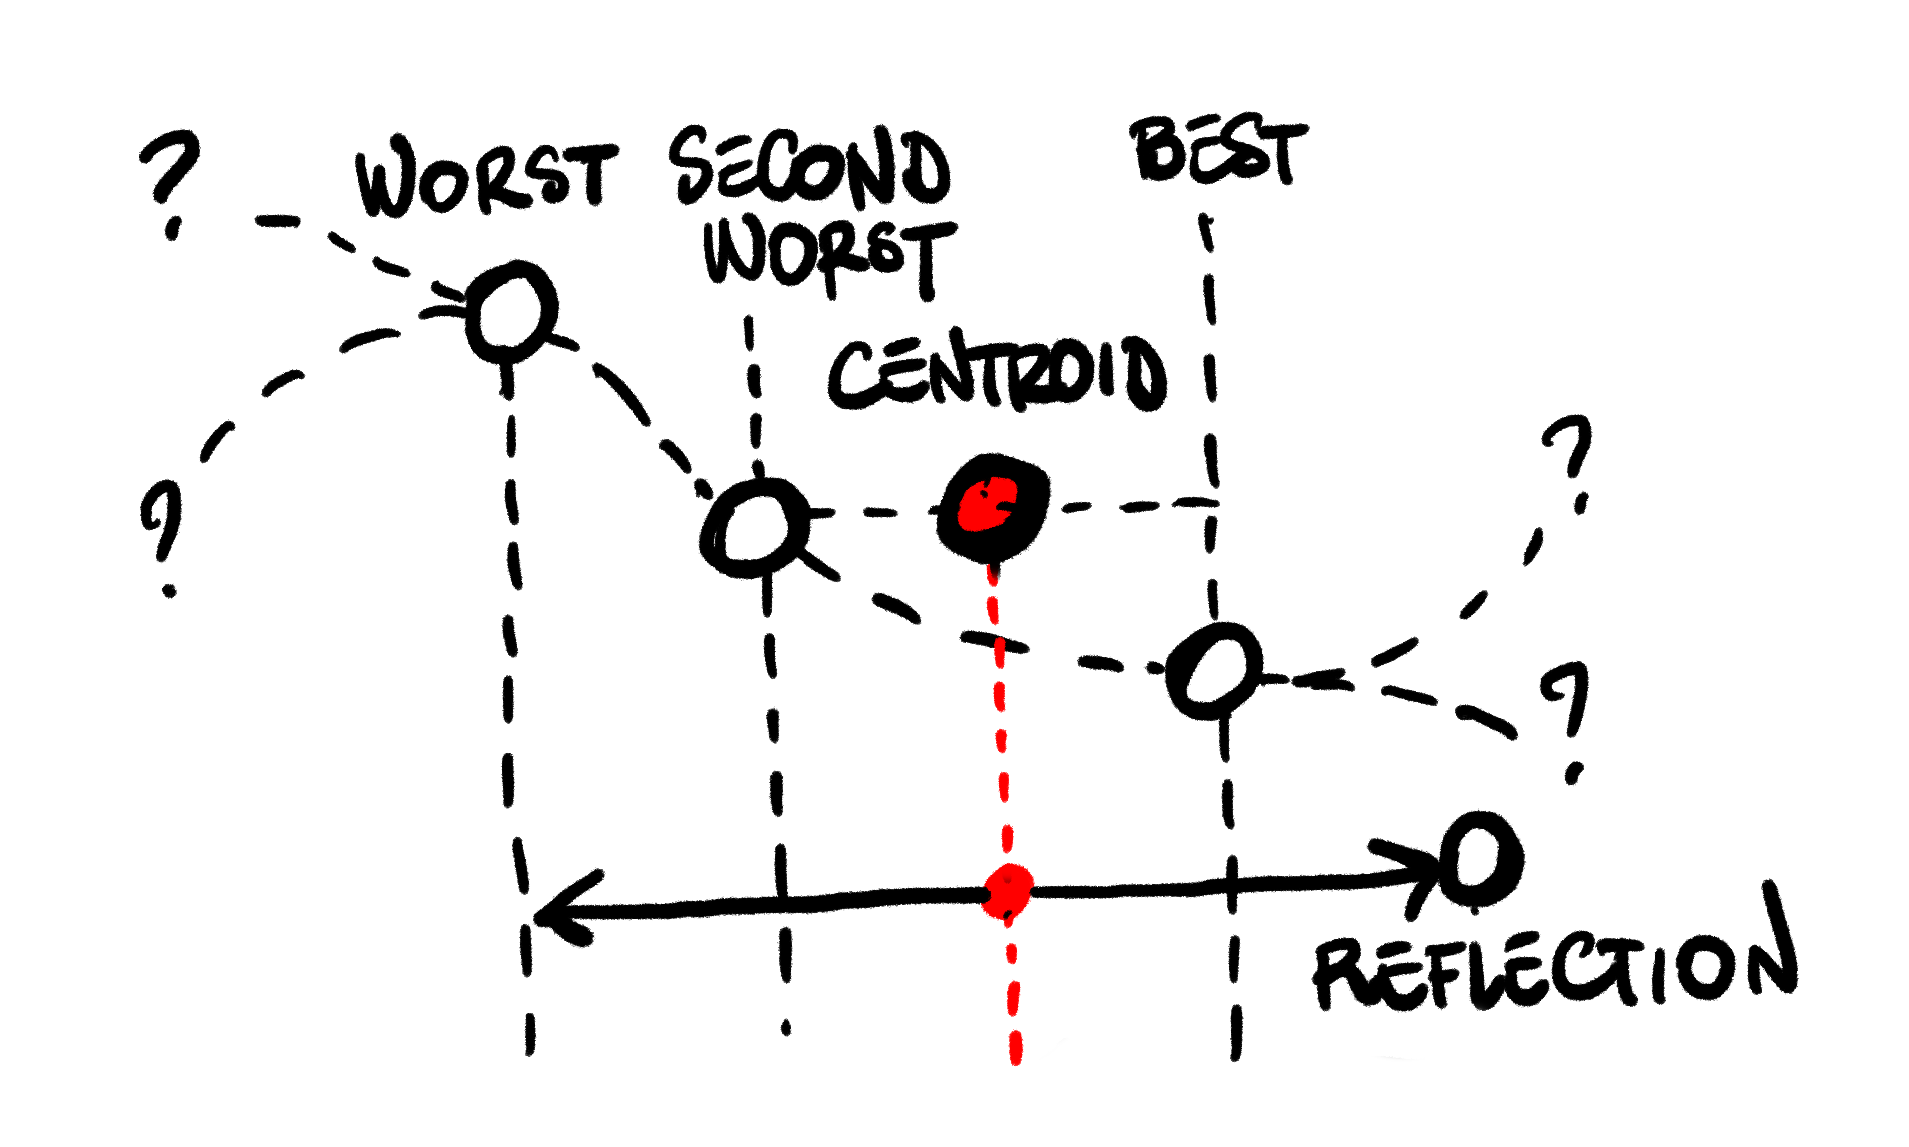 ?
WORST
SECOND
WORST
BEST
CENTROID
?
?
?
REFLECTION